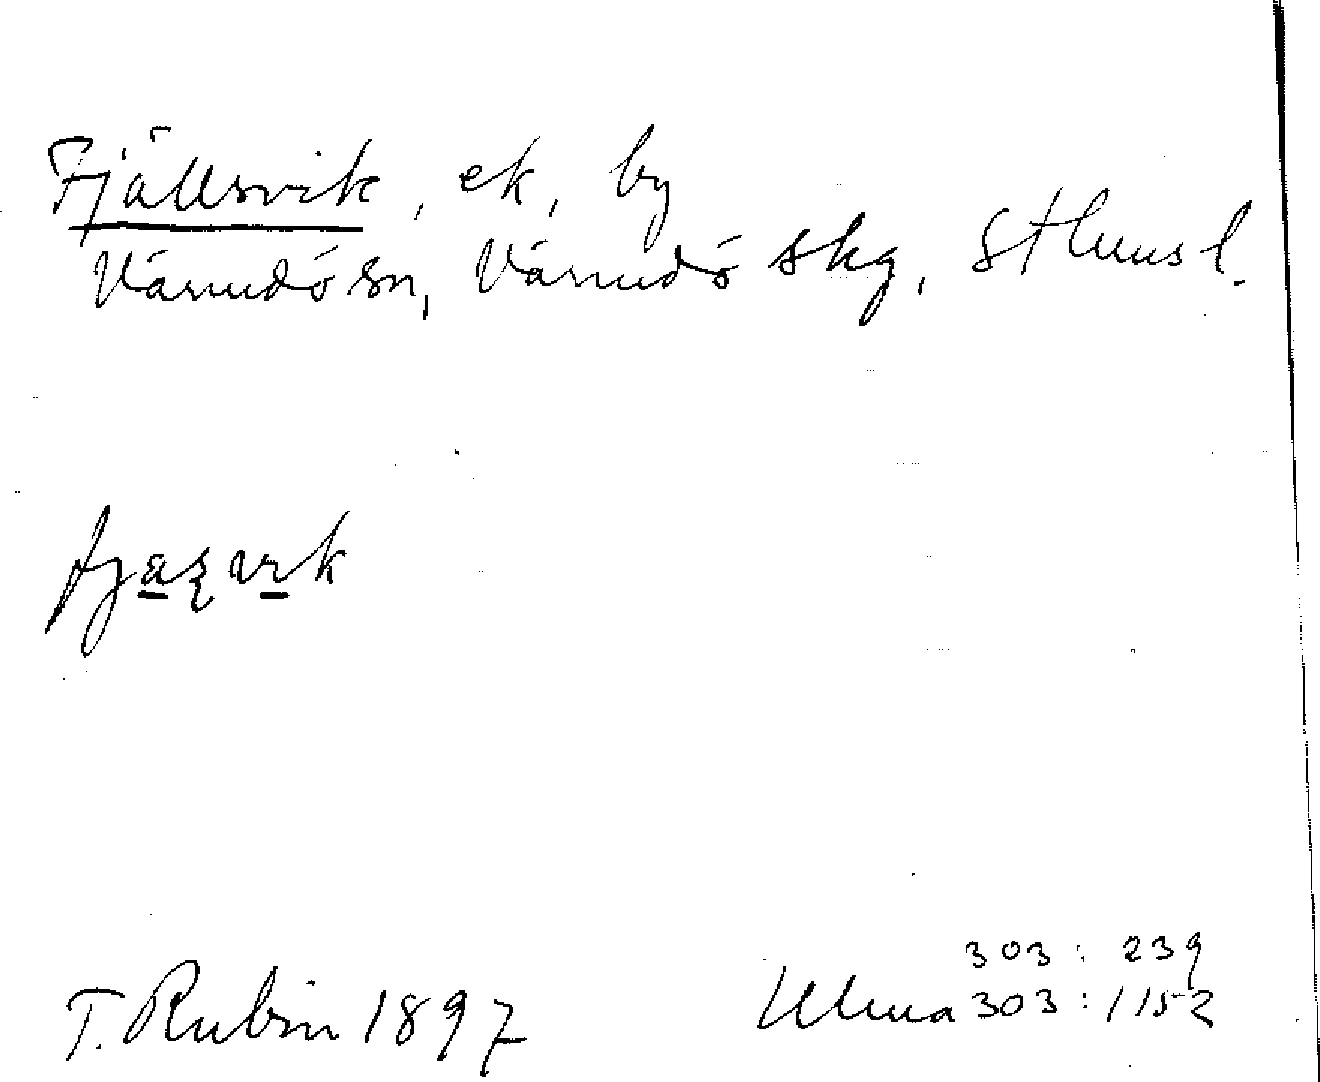 Fjällsvik, ek, by
Värmdö sn, Värmdö skg, Sthlms l.
T. Rubin 1897
303: 239
Ulma 303: 1152